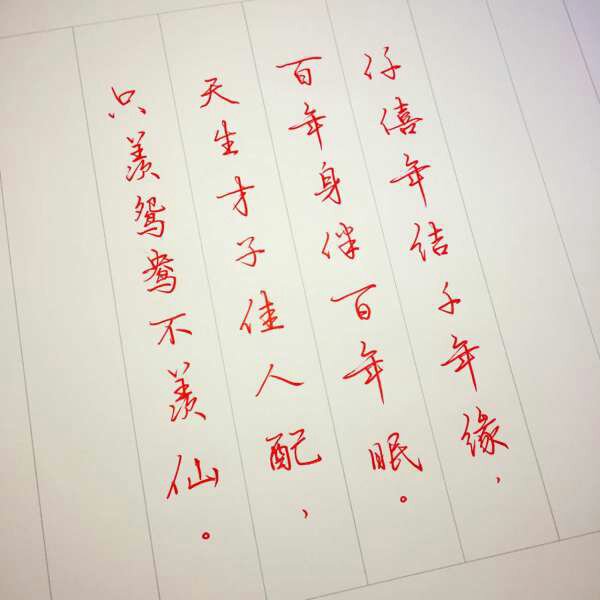 仔僖年结千年缘，
百年身伴百年眠。
天生才子佳人配，
只羡鸳鸯不羡仙。